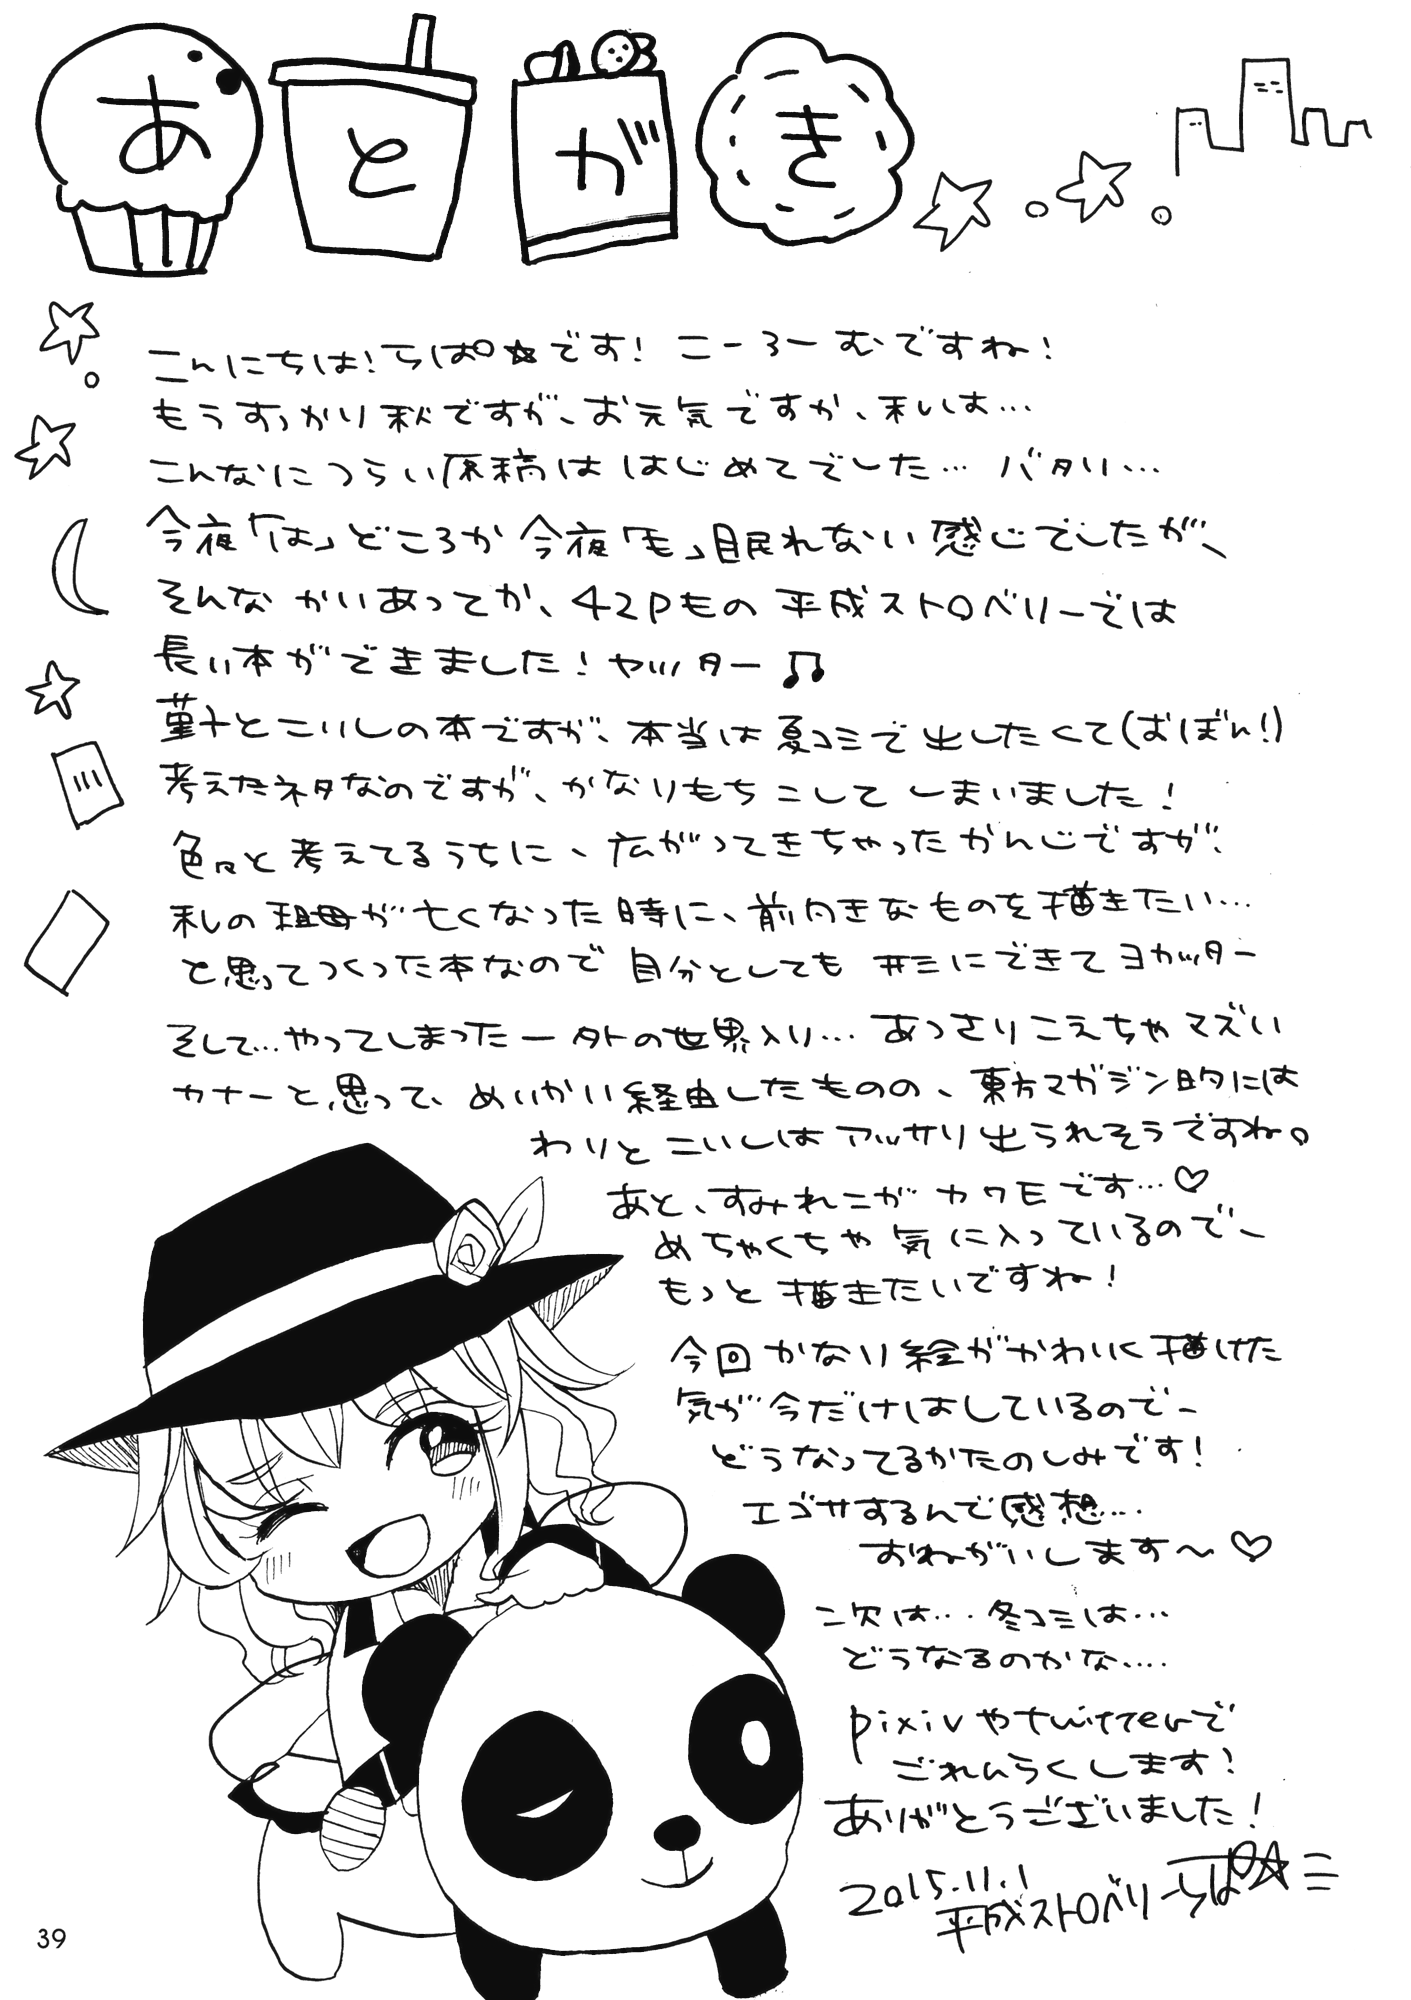 あとがき
こんにちは!らぱ☆です! こーろーむですね!
もうすっかり秋ですが、お元気ですか、私は…
こんなにつらい原稿ははじめてでした… バタリ…
今夜「は」どころか今夜「も」眠れない感じでしたが、
そんなかいあってか、42Pもの平成ストロベリーでは
長い本ができました!ヤッター♫
菫子とこいしの本ですが、本当は夏コミで出したくて(おぼん!)
考えたネタなのですが、かなりもちこしてしまいました!
色々と考えてるうちに、広がってきちゃったかんじですが、
私の祖母が亡くなった時に、前向きなものを描きたい…
と思ってつくった本なので自分としても 形にできてヨカッター
そして…やってしまった一外の世界入り… あっさりこえちゃマズい
カナーと思って、めいかい経由したものの、東方マガジン的には
わりとこいしはアッサリ出られそうですね。
あと、すみれこがカワEです…♡
めちゃくちゃ気に入っているのでー
もっと描きたいですね!
今回かなり絵がかわいく描けた
気が今だけはしているのでー
どうなってるかたのしみです!
エゴサするんで感想…
おねがいします〜♡
次は…冬コミは…
どうなるのかな…
pixivやtwitterで
ごれんらくします!
ありがとうございました!
2015.11.1
平成ストロベリー らぱ☆
39